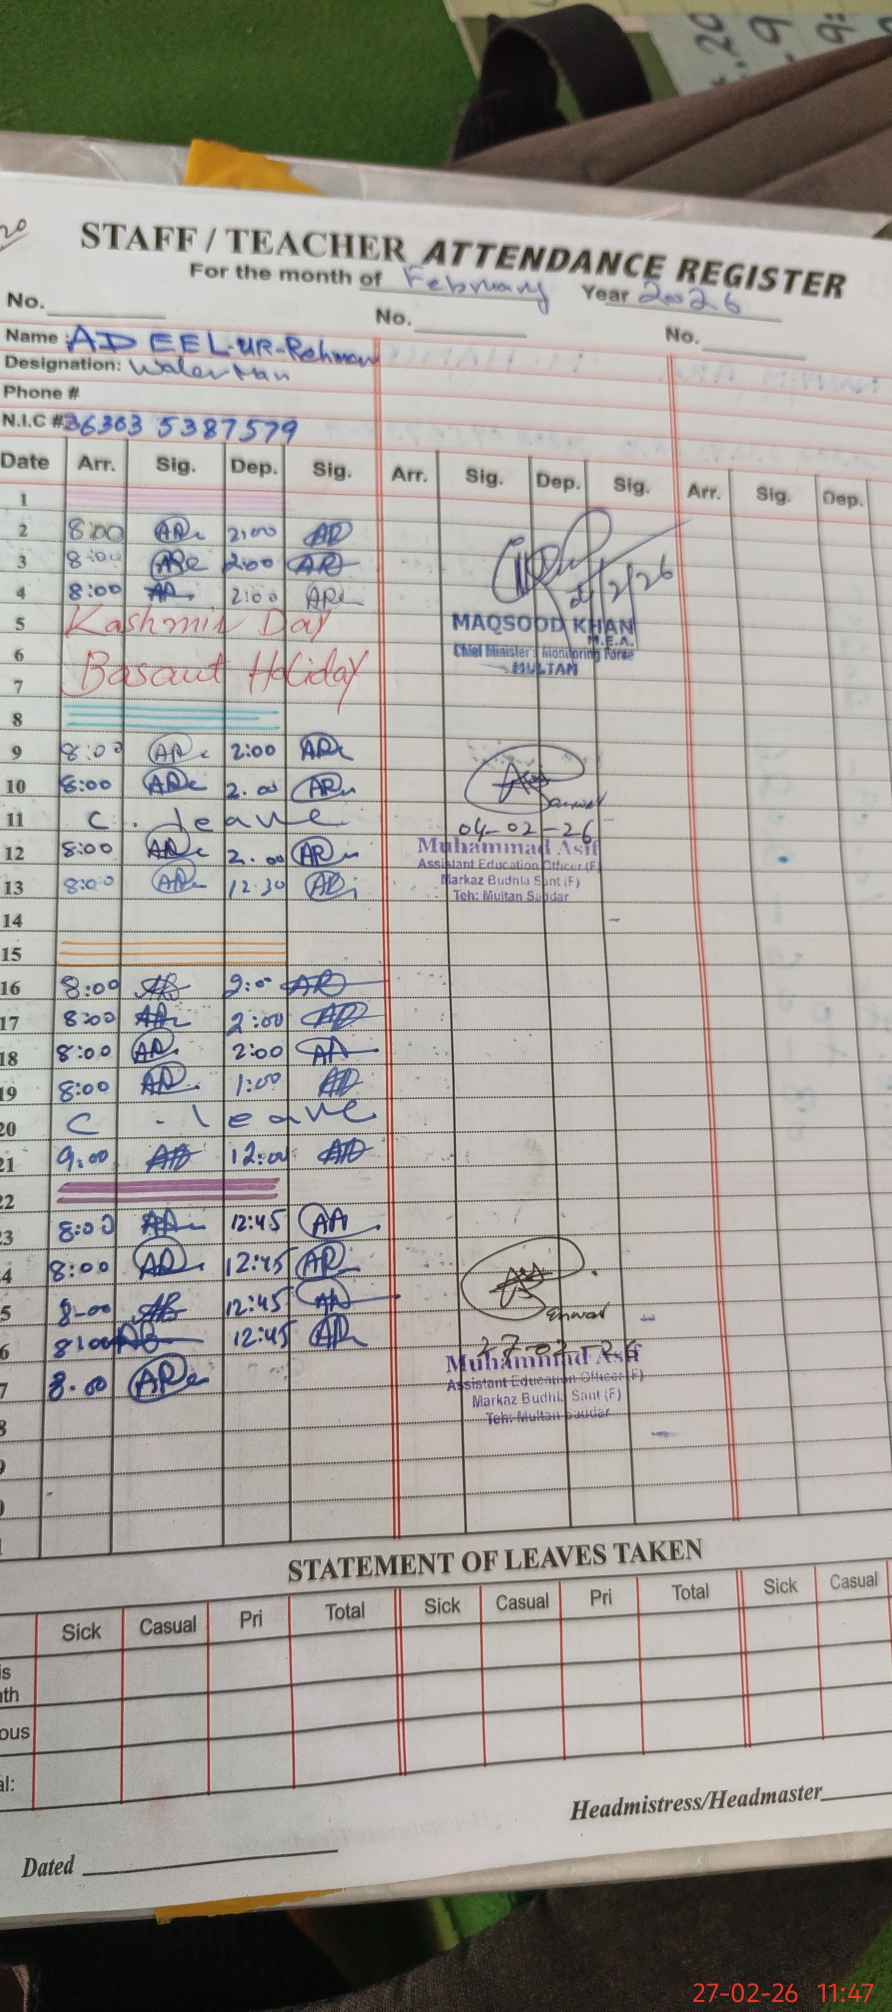 20
STAFF / TEACHER ATTENDANCE REGISTER
For the month of February Year 2026
No. No. No.
Name: ADEEL-UR-Rehman
Designation: Water Man
Phone #
N.I.C # 36303 5387579
Date Arr. Sig. Dep. Sig. Arr. Sig. Dep. Sig. Arr. Sig. Dep.
1
2 8:00 2:00
3 8:00 2:00
4 8:00 2:00
5 Kashmir Day
6 Basant Holiday
7
8
9 8:00 2:00
10 8:00 2.00
11 C. leave
12 8:00 2.00
13 8:00 12:30
14
15
16 8:00 2:00
17 8:00 2:00
18 8:00 2:00
19 8:00 1:00
20 C. leave
21 9:00 12:00
22
23 8:00 12:45
4 8:00 12:45
5 8-00 12:45
6 8:00 12:45
7 8.00
8
9
0
1
/2/26
MAQSOOD KHAN
M.E.A.
Chief Minister's Monitoring Force
MULTAN
04-02-26
Muhammad Asif
Assistant Education Officer (F)
Markaz Budhla Sant (F)
Teh: Multan Saddar
27-02-26
Muhammad Asif
Assistant Education Officer (F)
Markaz Budhla Sant (F)
Teh: Multan Saddar
STATEMENT OF LEAVES TAKEN
Sick Casual Pri Total Sick Casual Pri Total Sick Casual
is
nth
ous
al:
Headmistress/Headmaster
Dated
27-02-26 11:47